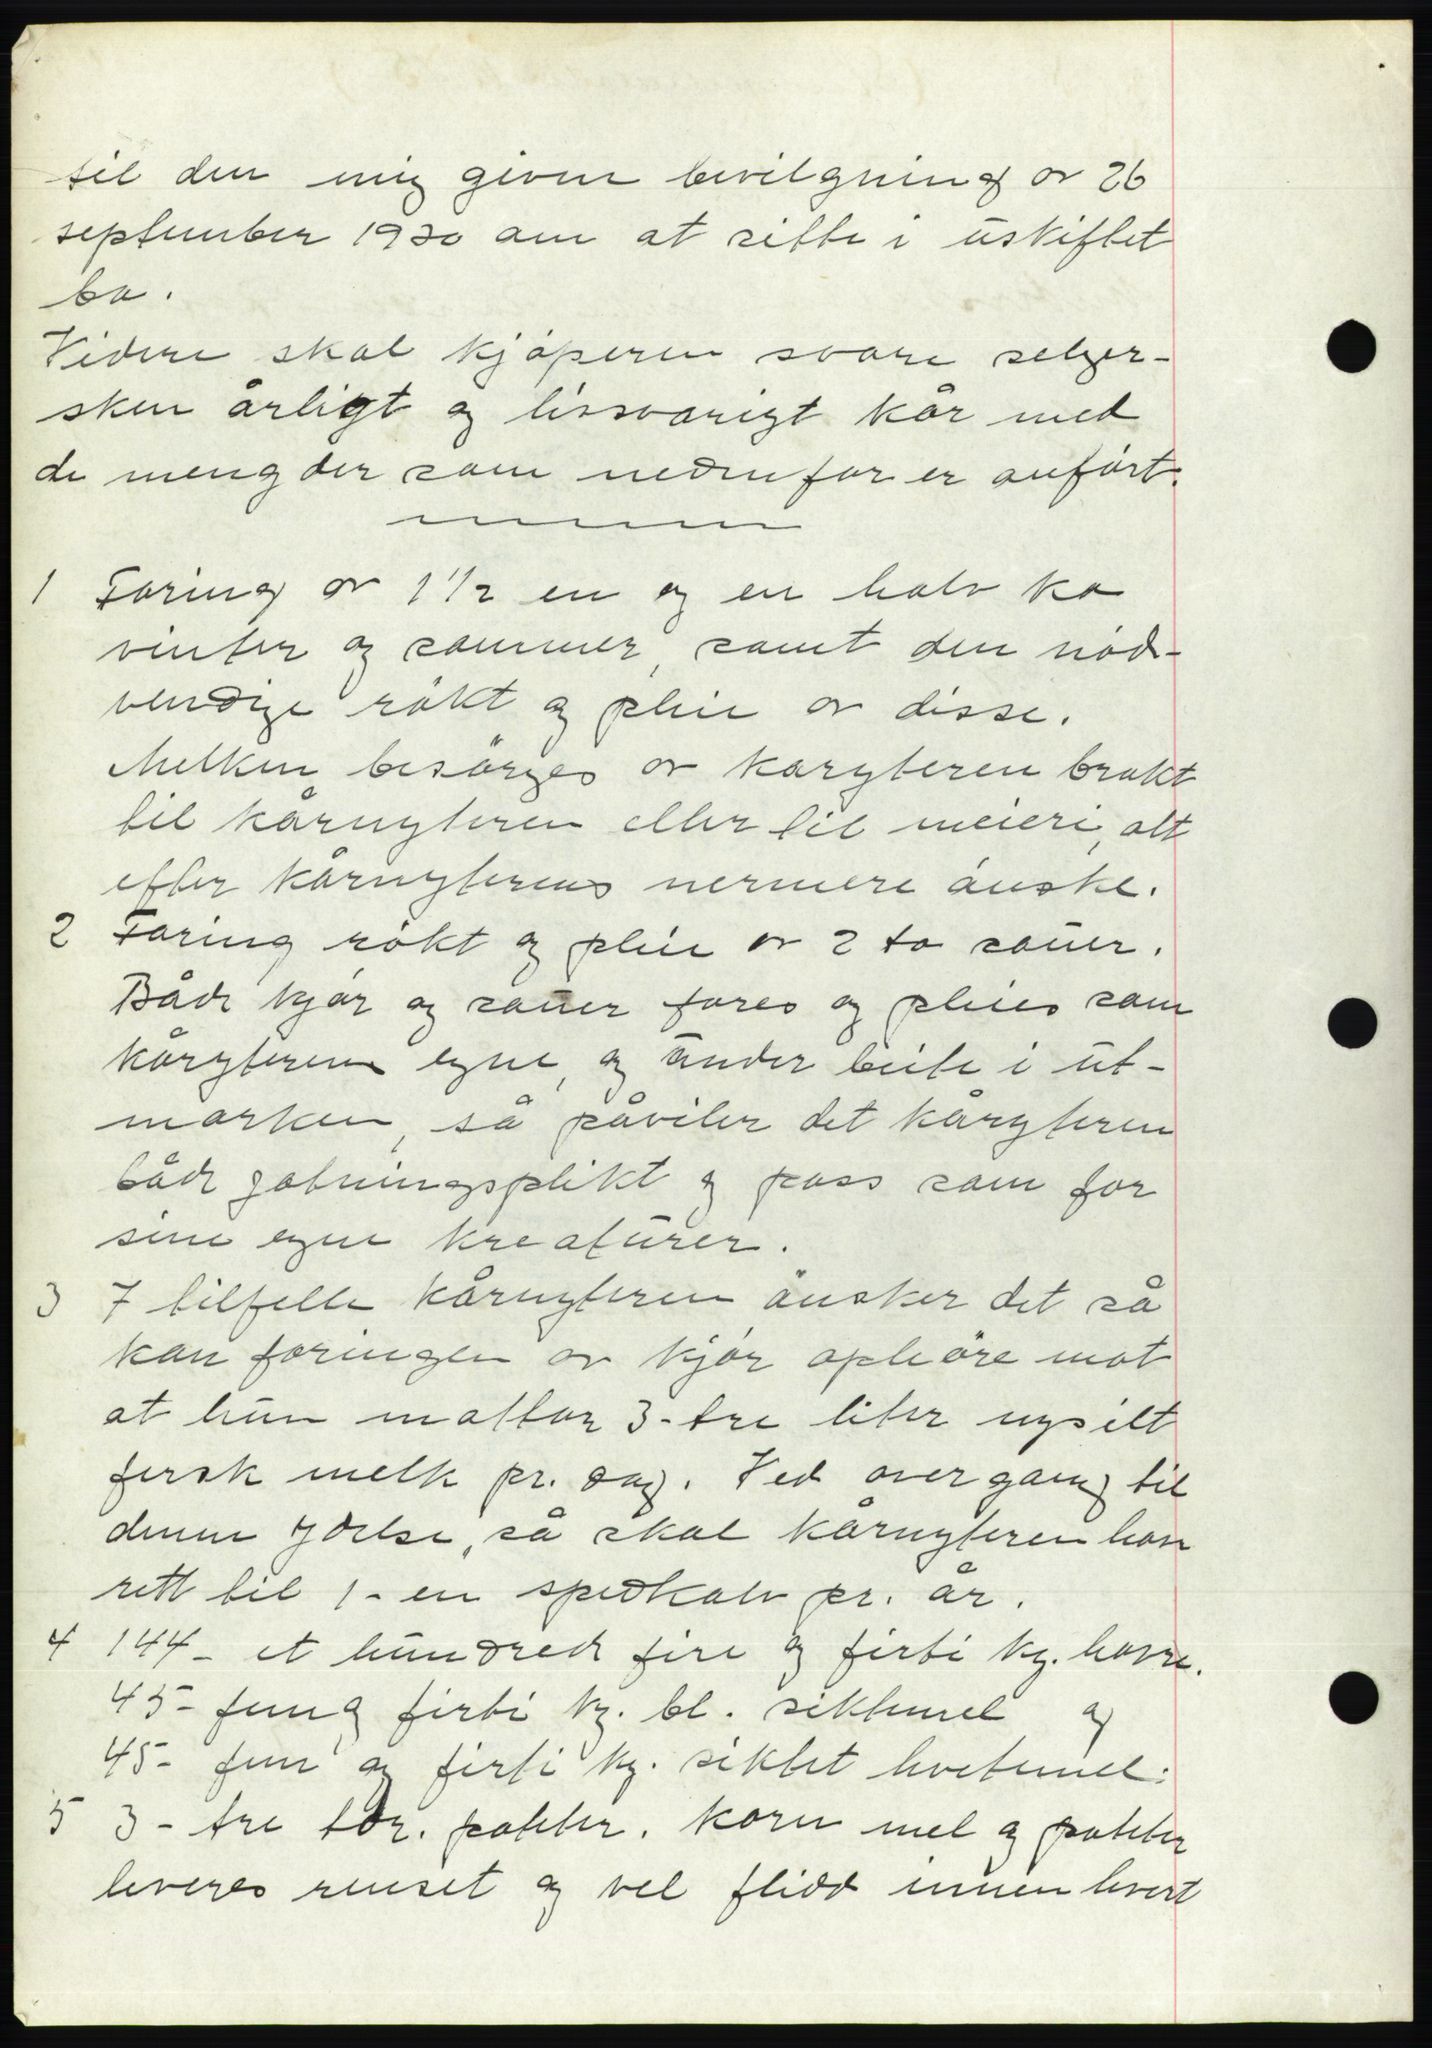 til den mig given bevilgning av 26
september 1930 om at sitte i uskiftet
bo.
Videre skal kjøperen svare selger-
sken årligt og livsvarigt kår med
de mengder som nedenfor er anført.
1 Foring av 1 1/2 en og en halv ko
vinter og sommer, samt den nöd-
vendige rökt og pleie av disse.
Melken besörges av kåryteren brakt
til kårnyteren eller til meieri, alt
efter kårnyterens nermere ønske.
2 Foring rökt og pleie av 2 to sauer.
Både kjør og sauer fores og pleies som
kåryterens egne, og under beite i ut-
marken, så påviler det kåryteren
både gjetningsplikt og pass som for
sine egne kreaturer.
3 I tilfelle kårnyteren ønsker det så
kan foringen av kjør ophöre mot
at hun mottar 3- tre liter nysilt
fersk melk pr. dag. Ved overgang til
denne ydelse, så skal kårnyteren have
rett til 1- en spedkalv pr. år.
4 144- et hundrede fire og firti kg. havre.
45- fem og firti kg. bl. siktemel og
45- fem og firti kg. siktet hvetemel.
5 3- tre tdr. poteter. Korn mel og poteter
leveres renset og vel flidd innen hvert